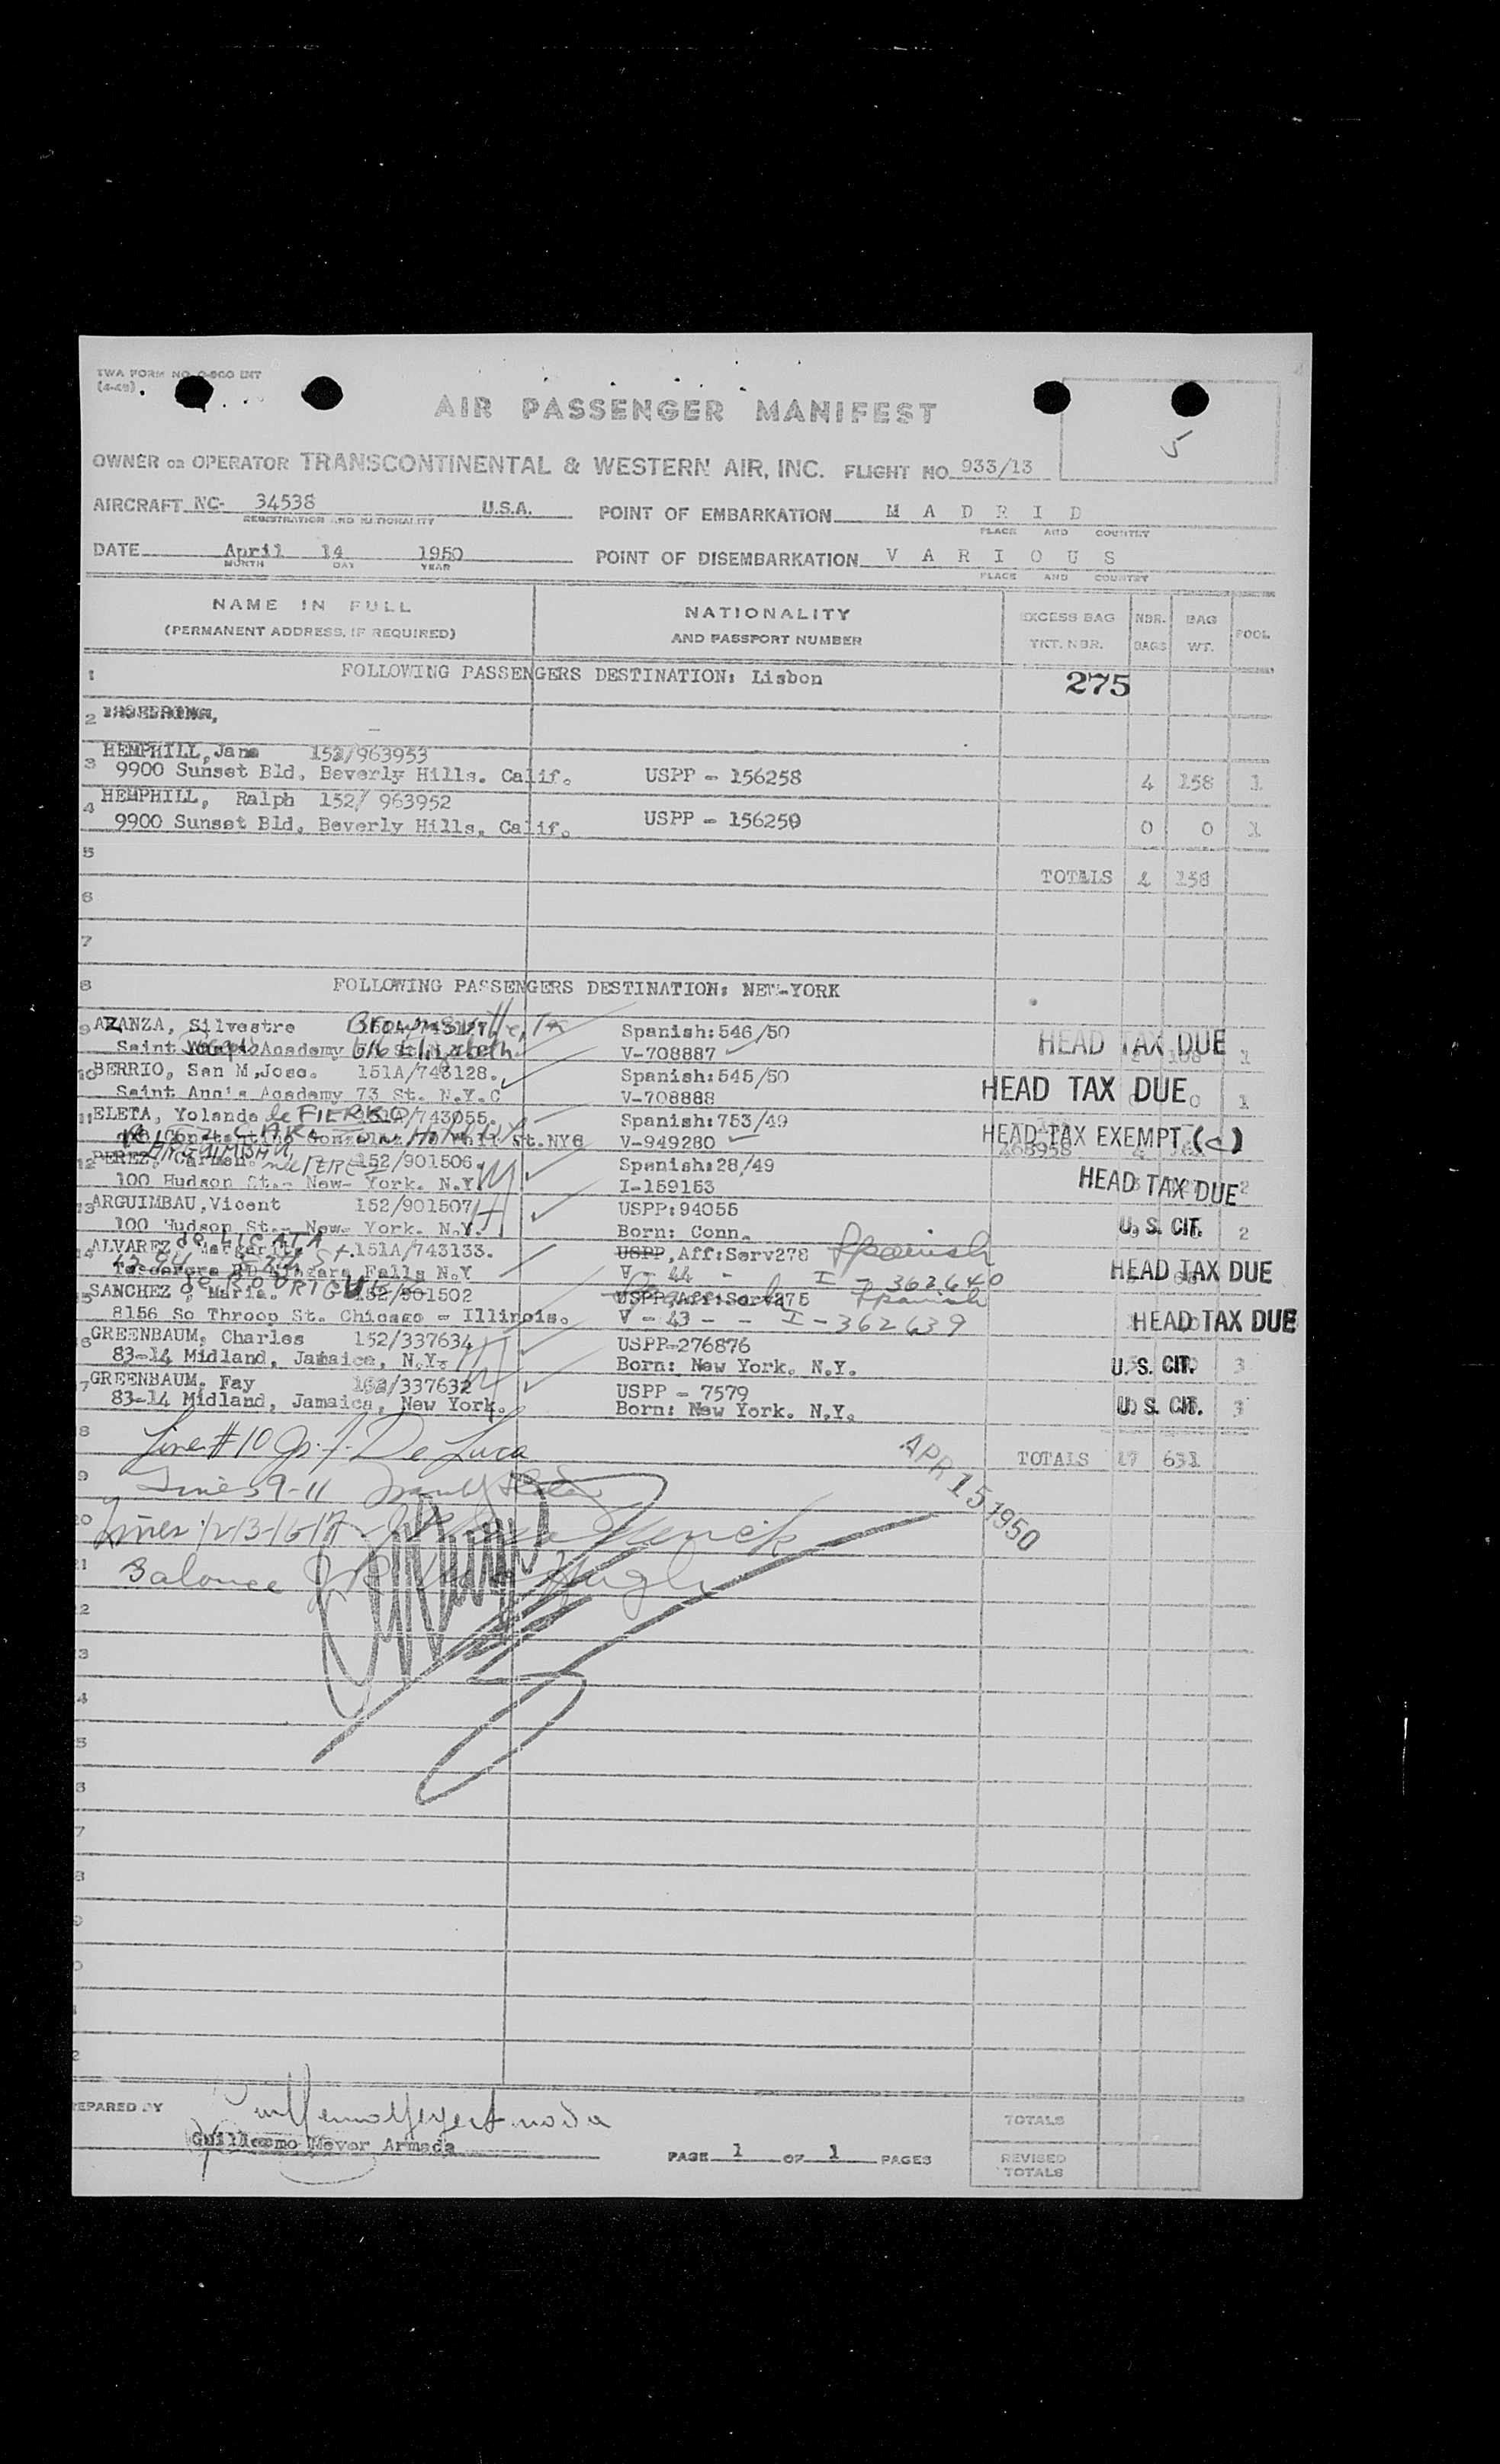 TWA FORM NO. O-800 INT
(4-49)
AIR PASSENGER MANIFEST
5
OWNER OR OPERATOR TRANSCONTINENTAL & WESTERN AIR, INC. FLIGHT NO. 933/13
AIRCRAFT NC- 34538 U.S.A. POINT OF EMBARKATION M A D R I D
REGISTRATION AND NATIONALITY PLACE AND COUNTRY
DATE April 14 1950 POINT OF DISEMBARKATION V A R I O U S
MONTH DAY YEAR PLACE AND COUNTRY
NAME IN FULL NATIONALITY EXCESS BAG NBR. BAG POOL
(PERMANENT ADDRESS, IF REQUIRED) AND PASSPORT NUMBER TKT. NBR. BAGS WT.
1 FOLLOWING PASSENGERS DESTINATION: Lisbon 275
2
HEMPHILL, Jane 152/963953
3 9900 Sunset Bld, Beverly Hills. Calif. USPP - 156258 4 158 1
HEMPHILL, Ralph 152/ 963952
4 9900 Sunset Bld, Beverly Hills, Calif. USPP - 156259 0 0 1
5
TOTALS 4 158
6
7
8 FOLLOWING PASSENGERS DESTINATION: NEW-YORK
9 ARANZA, Silvestre Brownsville, Tx Spanish: 546/50 HEAD TAX DUE 1
Saint Joseph Academy Elizabeth V-708887
10 BERRIO, San M, Jose. 151A/743128. Spanish: 545/50 HEAD TAX DUE 0 1
Saint Ann's Academy 73 St. N.Y.C V-708888
11 ELETA, Yolanda de FIERRO 151A/743055. Spanish: 753/49 HEAD TAX EXEMPT (c)
St. NYC V-949280
ARGUIMBAU,
12 PEREZ, Carmen. née PEREZ 152/901506. Spanish: 28/49 HEAD TAX DUE 2
100 Hudson St.- New- York. N.Y. I-159153
13 ARGUIMBAU, Vicent 152/901507 USPP: 94055 U. S. CIT. 2
100 Hudson St.- New- York. N.Y. Born: Conn.
de LICATA
14 ALVAREZ, Margarita 151A/743133. USPP, Aff: Serv278 Spanish
Tuscarora Rd Niagara Falls N.Y V - 44 - I - 362640 HEAD TAX DUE
de RODRIGUEZ
15 SANCHEZ, Maria. 152/901502 USPP, Aff: Serv275 Spanish
8156 So Throop St. Chicago - Illinois. V - 43 - - I - 362639 HEAD TAX DUE
6 GREENBAUM, Charles 152/337634 USPP-276876
83-14 Midland, Jamaica, N.Y. Born: New York. N.Y. U. S. CIT. 3
7 GREENBAUM, Fay 152/337632 USPP - 7579
83-14 Midland, Jamaica, New York. Born: New York. N.Y. U. S. CIT. 3
8 Line #10 De Luca TOTALS 17 631
APR 15 1950
9 Lines 9-11
20 Lines 12-13-16-17
21 Balance
2
3
4
5
6
7
8
9
0
2
PREPARED BY TOTALS
Guillermo Meyer Armada
PAGE 1 OF 1 PAGES REVISED TOTALS